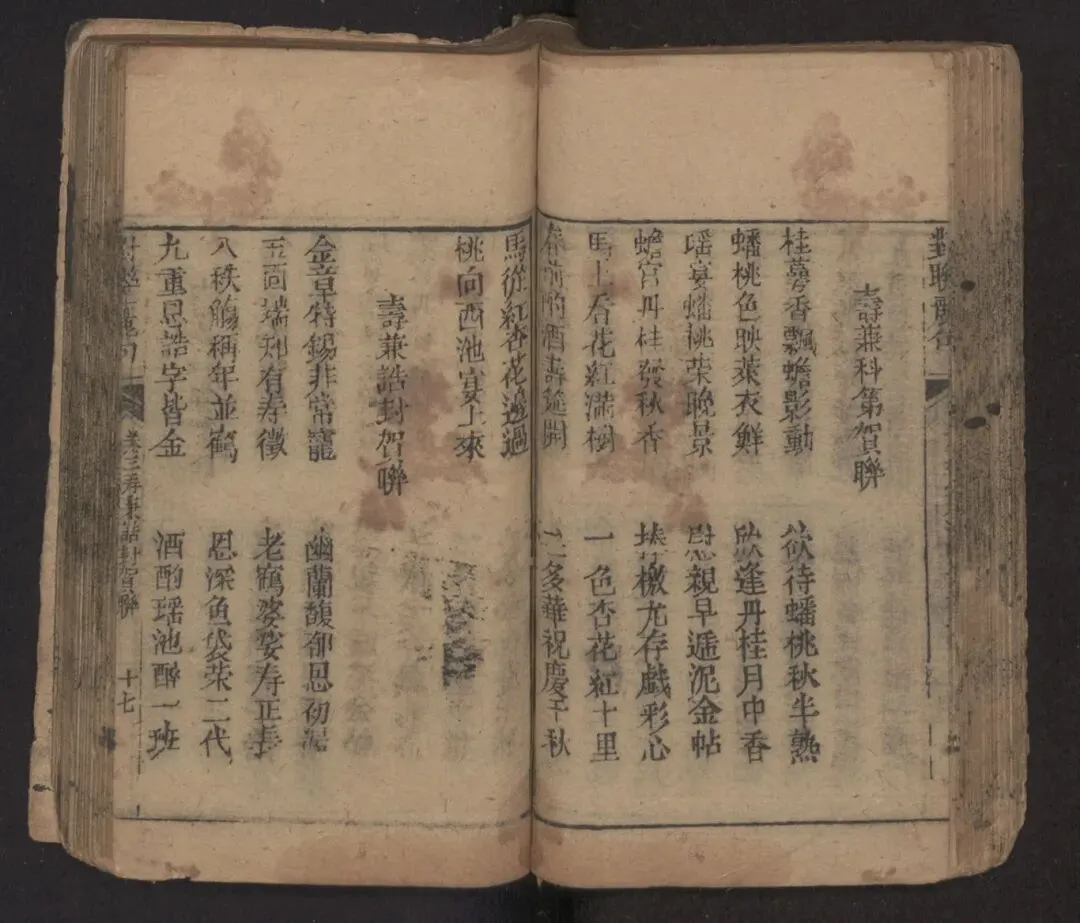 對聯
壽兼科第賀聯
桂蕚香飄蟾影動
欲待蟠桃秋半熟
蟠桃色映萊衣鮮
欣逢丹桂月中香
瑶宴蟠桃荣晚景
慰親早遞泥金帖
蟾宮丹桂發秋香
捧檄尤存戯彩心
馬上看花紅滿樹
一色杏花紅十里
春前酌酒壽筵開
多華祝慶千秋
馬從紅杏花邊過
桃向西池宴上來
壽兼誥封賀聯
金章特錫非常寵
幽蘭馥郁恩初渥
五色瑞刘有寿徵
老鶴婆娑寿正長
八秩觴稱年並鶴
恩深魚袋荣二代
九重恩誥字皆金
酒酌瑶池醉一班
卷三寿兼誥封賀聯
十七